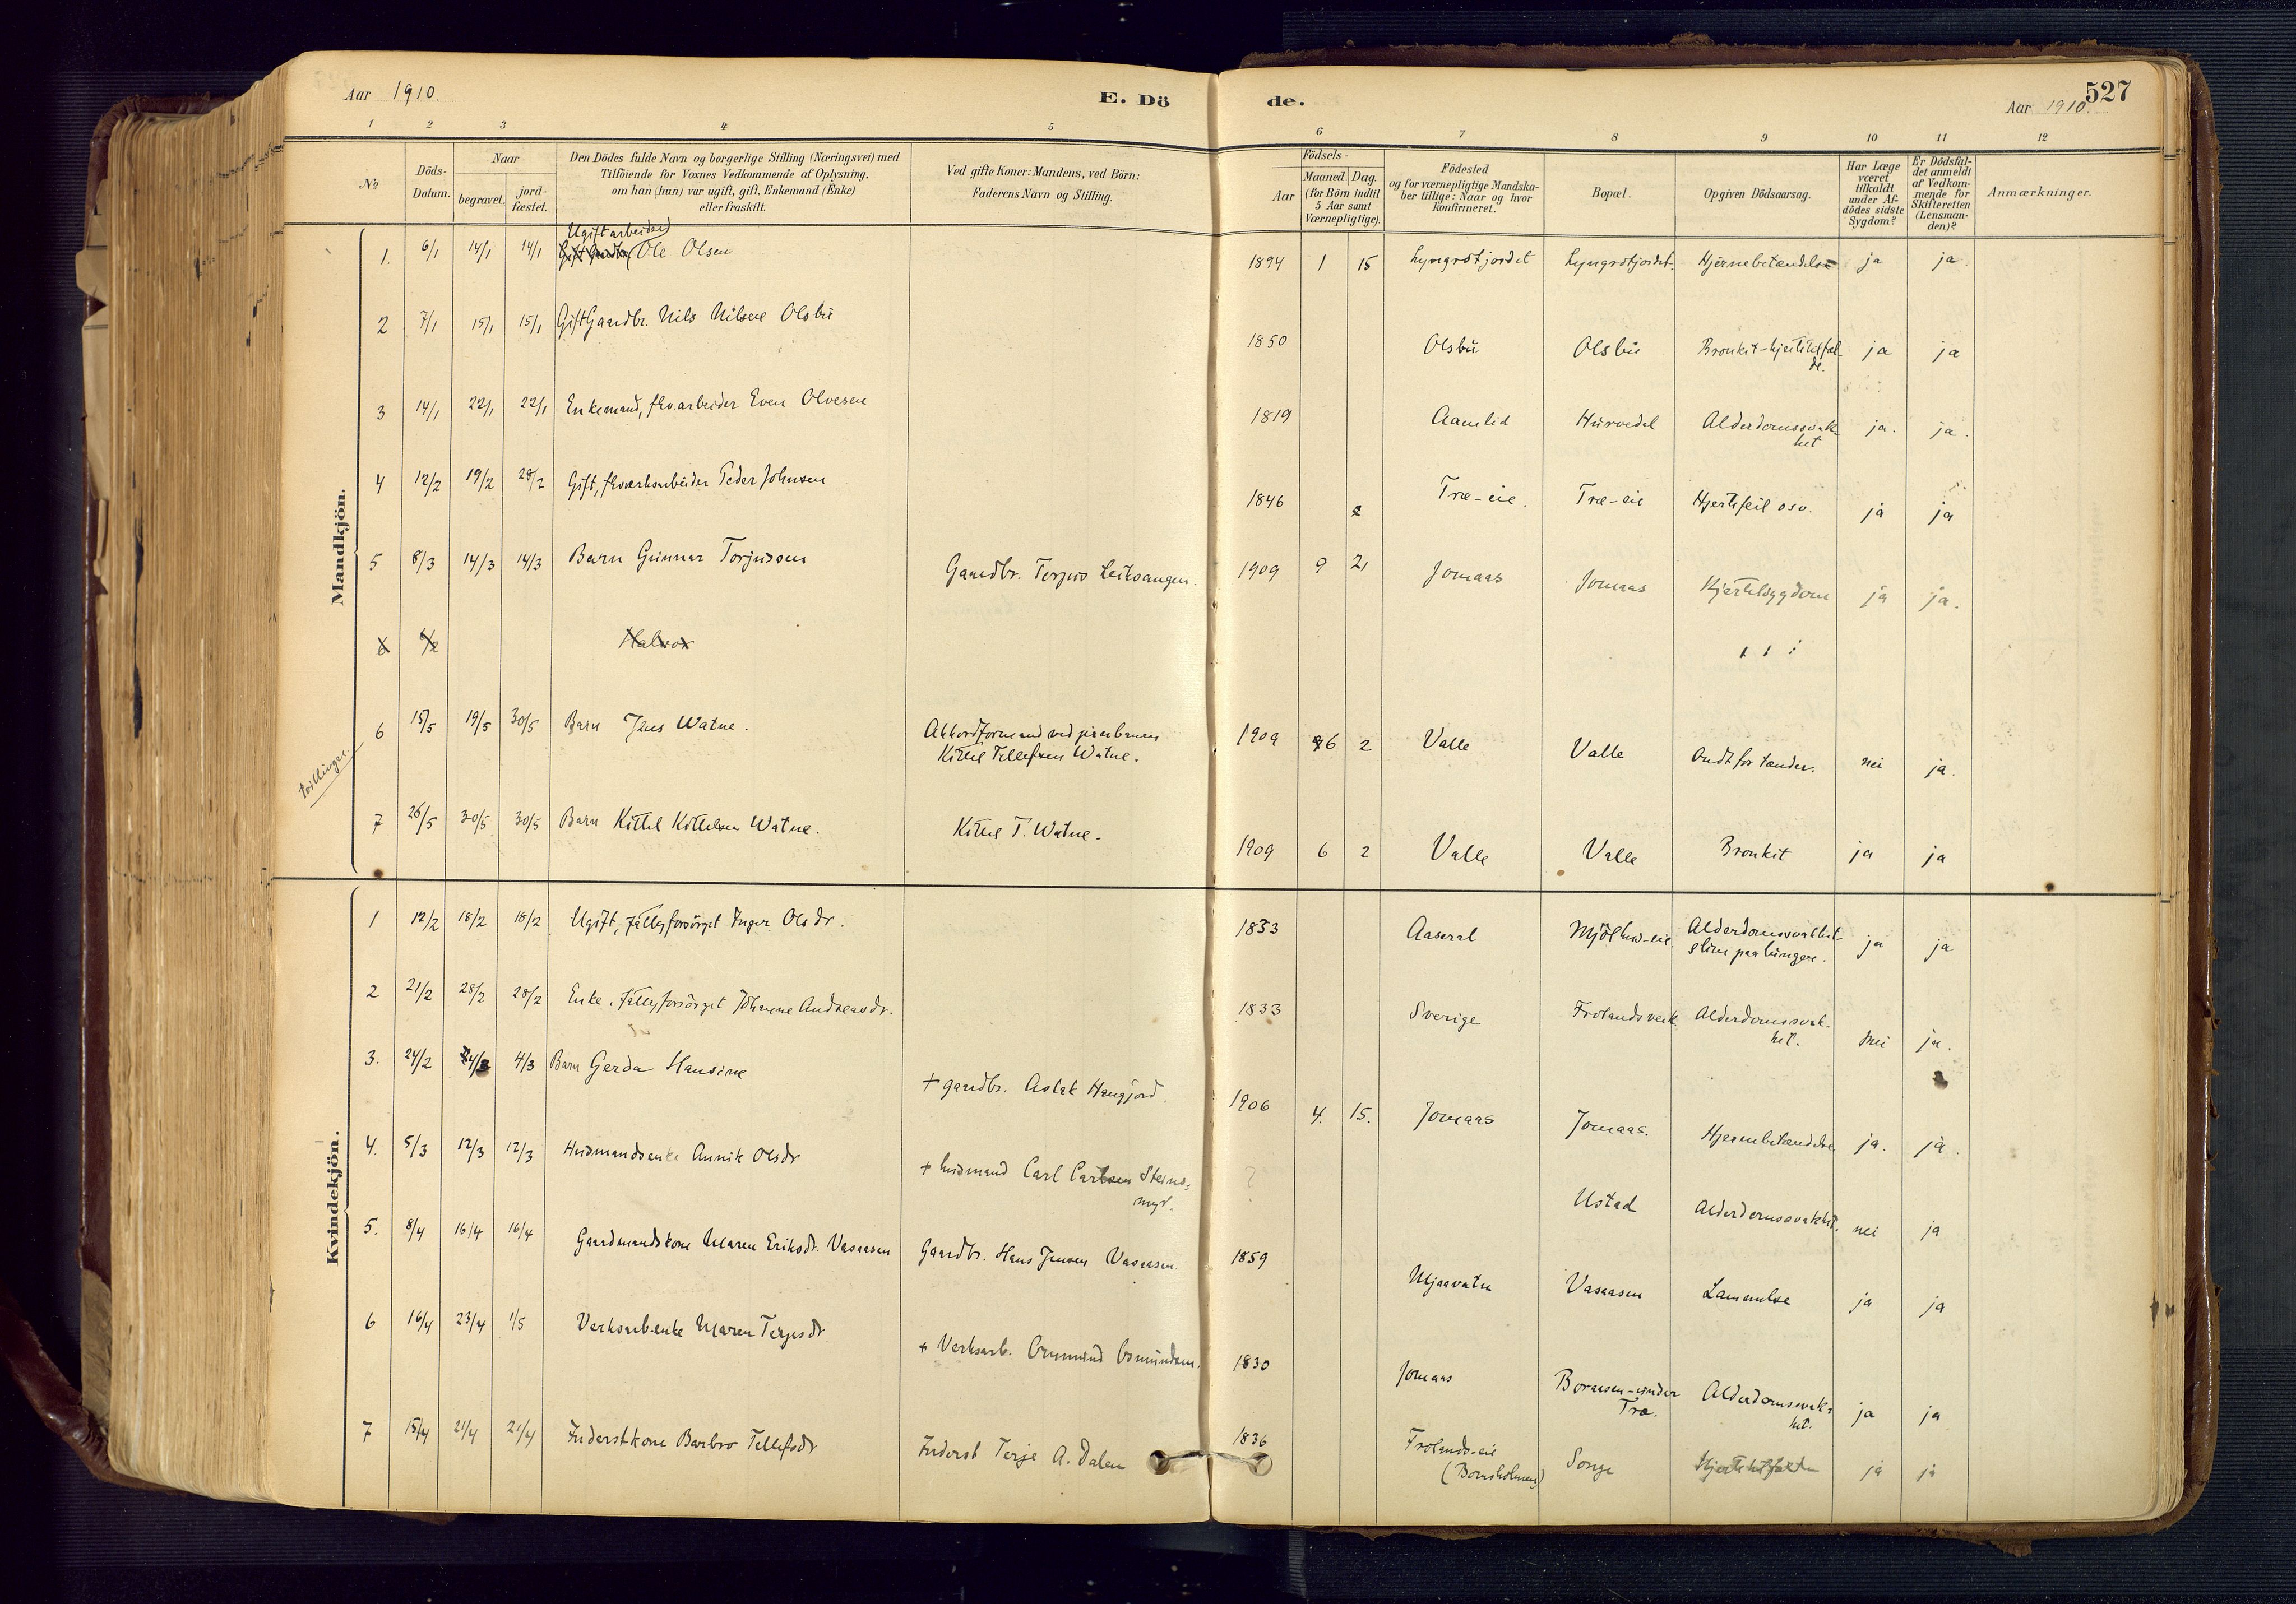 Aar 1910.
E. Dö
de.
527
Aar 1910.
1 2 3 4 5 6 7 8 9 10 11 12
No
Döds-
Datum.
Naar
begravet.
jord-
fæstet.
Den Dödes fulde Navn og borgerlige Stilling (Næringsvei) med
Tilföiende for Voxnes Vedkommende af Oplysning,
om han (hun) var ugift, gift, Enkemand (Enke)
eller fraskilt.
Ved gifte Koner: Mandens, ved Börn:
Faderens Navn og Stilling.
Födsels-
Aar
Maaned. Dag.
(for Börn indtil
5 Aar samt
Værnepligtige).
Födested
og for værnepligtige Mandska-
ber tillige: Naar og hvor
konfirmeret.
Bopæl.
Opgiven Dödsaarsag.
Har Læge
været
tilkaldt
under Af-
dödes sidste
Sygdom?
Er Dödsfal-
det anmeldt
af Vedkom-
mende for
Skifteretten
(Lensman-
den)?
Anmærkninger.
Mandkjön.
Ugift arbeider
1. 6/1 14/1 14/1 Ole Olsen 1894 1 15 Lyngrotjordet Lyngrotjordet. Hjernebetændelse ja ja.
2 7/1 15/1 15/1 Gift Gaardbr. Nils Nilsen Olsbu 1850 Olsbu Olsbu Bronkit-hjerteslagfæl-
de. ja ja
3 14/1 22/1 22/1 Enkemand, fhv. arbeider Even Olvesen 1819 Aamlid Hurvedal Alderdomssvak-
het ja. ja.
4 12/2 19/2 28/2 Gift, fhv. verksarbeider Peder Johnsen 1846 Træ-eie. Træ-eie Hjertefeil osv. ja ja
5 8/3 14/3 14/3 Barn Gunnar Torjussen Gaardbr. Torjus Leiksangen. 1909 9 21 Jomaas Jomaas Kjertelsygdom ja ja.
6 Halvor
tvillinger
6 15/5 19/5 30/5 Barn Jens Watne. Akkordformand ved jernbanen
Kittil Tellefsen Watne. 1909 6 2 Valle Valle Ondt for tænder. nei ja.
7 26/5 30/5 30/5 Barn Kittel Kittelsen Watne. Kittel T. Watne. 1909 6 2 Valle Valle Bronkit ja ja
Kvindekjön.
1 12/2 18/2 18/2 Ugift, fattigforsörget Inger Olsdr. 1833 Aaseral Mjölhus-eie Alderdomssvakhet-
slim paa lungene. ja ja
2 21/2 28/2 28/2 Enke, fattigforsörget Johanne Andreasdr. 1833 Sverige Frolandsverk Alderdomssvak-
het. nei ja.
3. 24/2 4/3 Barn Gerda Hansine + gaardbr. Aslak Haugjord. 1906 4. 15. Jomaas Jomaas. Hjernebetændelse ja. ja.
4. 5/3 12/3 12/3 Husmandsenke Annik Olsdr + husmand Carl Carlsen Steins-
myr. ? Ustad Alderdomssvakhet. nei ja
5. 8/4 16/4 16/4 Gaardmandskone Maren Eriksdr. Vasaasen Gaardbr. Hans Jensen Vasaasen. 1859 Mjaavatn Vasaasen Lammelse ja ja
6 16/4 23/4 1/5 Verksarb.enke Maren Terjesdr + Verksarb. Gunmund Osmundsen. 1830 Jomaas Boraasen-under
Træ. Alderdomssvak-
het. ja ja
7 15/4 21/4 21/4 Inderstkone Barbro Tellefsdr Inderst Terje A. Dalen 1836 Frolands-eie
(Bornholmen) Songe ja ja